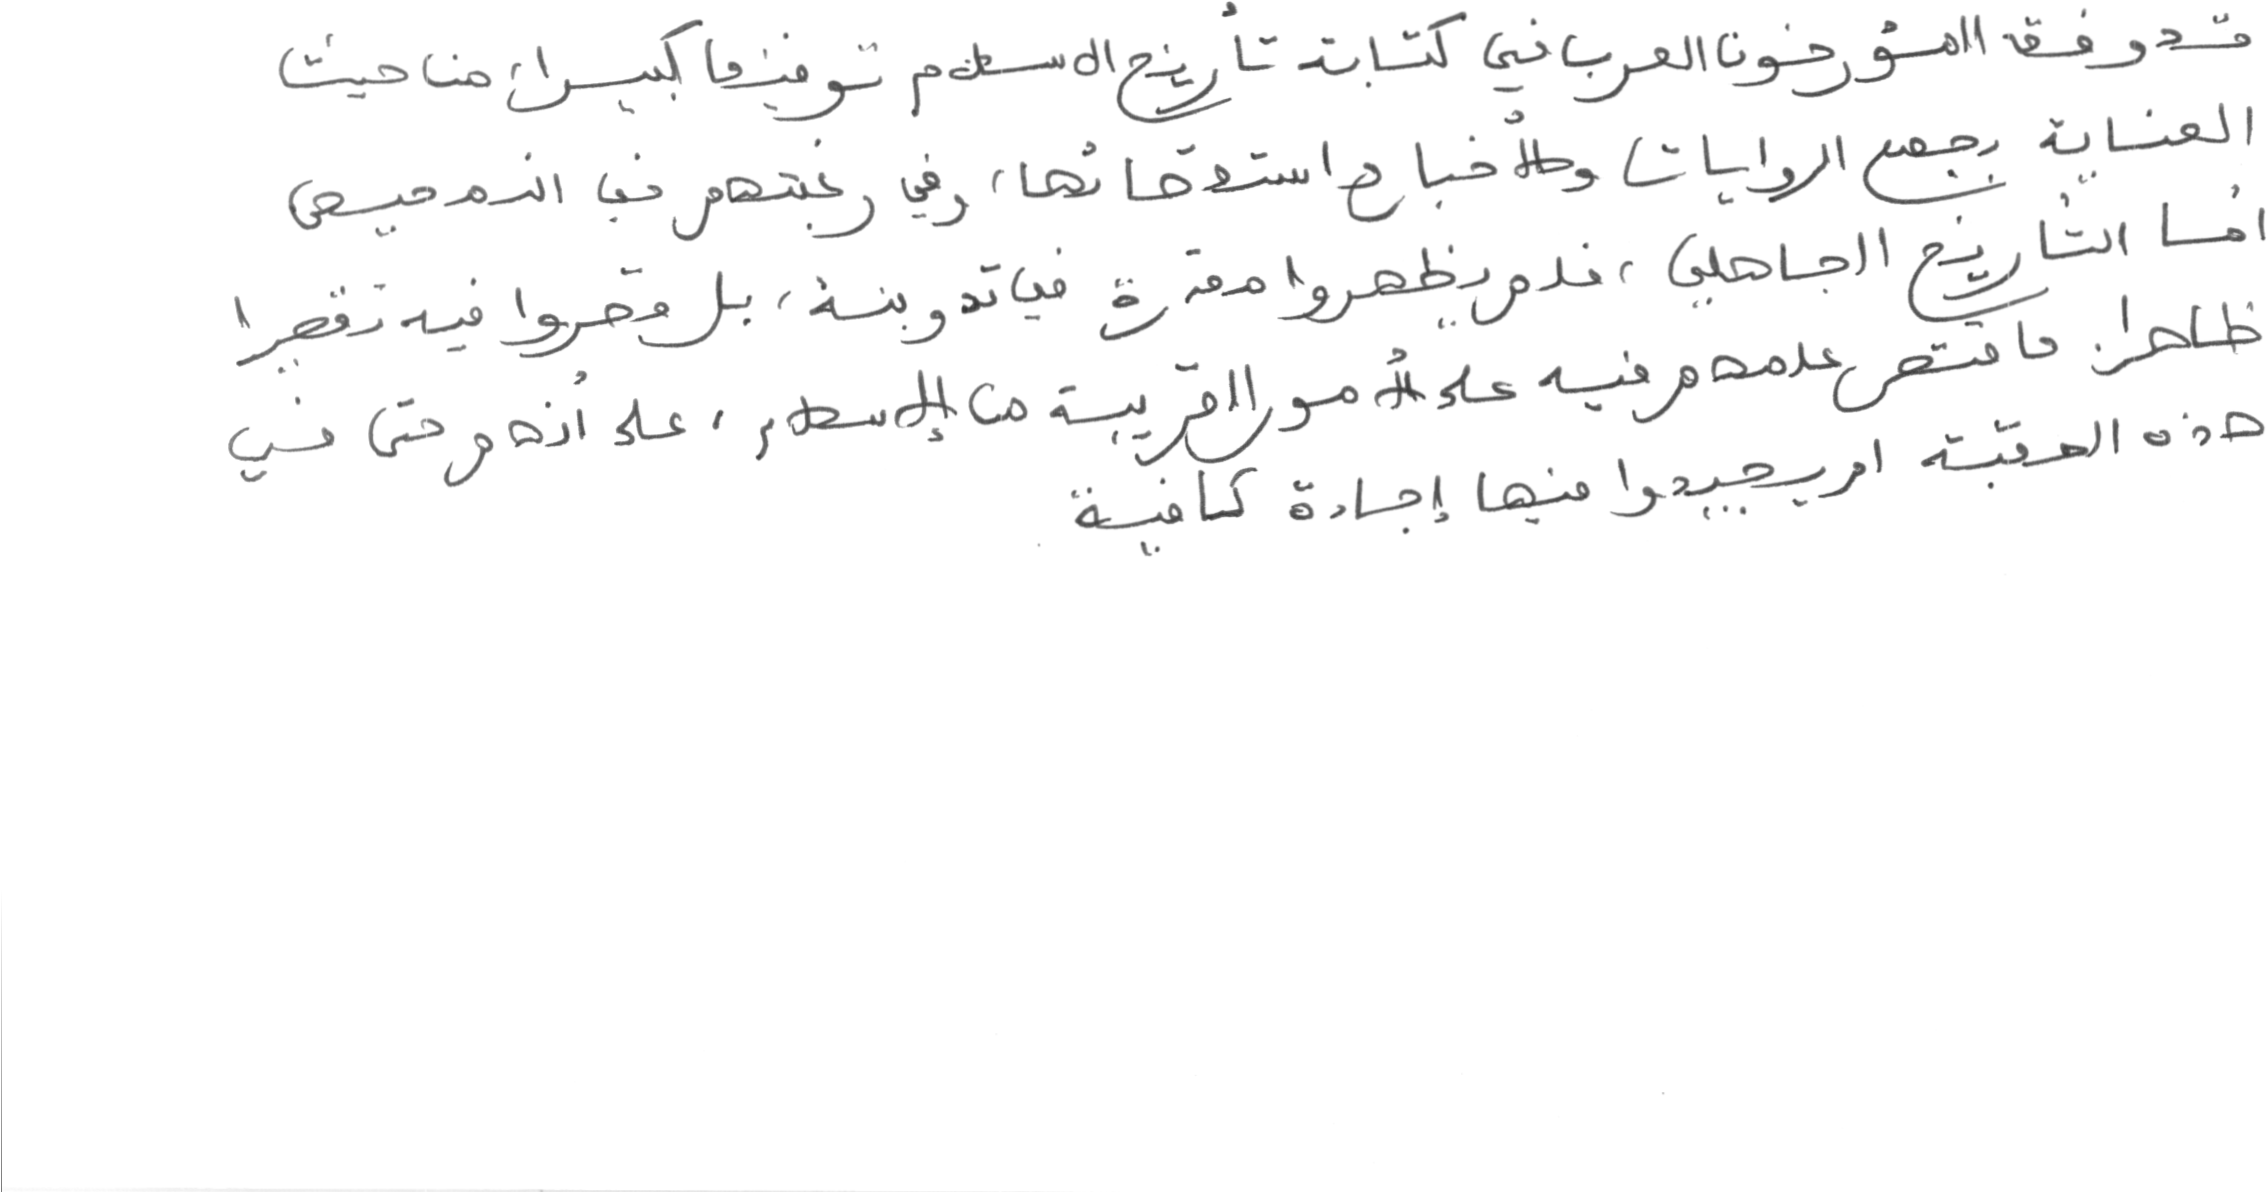 قد وفق المؤرخون العرب في كتابة تأريخ الاسلام توفيقا كبيرا، من حيث
العناية بجمع الروايات والأخبار واستقصائها، وفي رغبتهم في التمحيص
أما التأريخ الجاهلي، فلم يظهروا مقدرة في تدوينه، بل قصروا فيه تقصيرا
ظاهرا. فاقتصر علمهم فيه على الأمور القريبة من الإسلام، على أنهم حتى في
هذه الحقبة لم يجيدوا فيها إجادة كافية